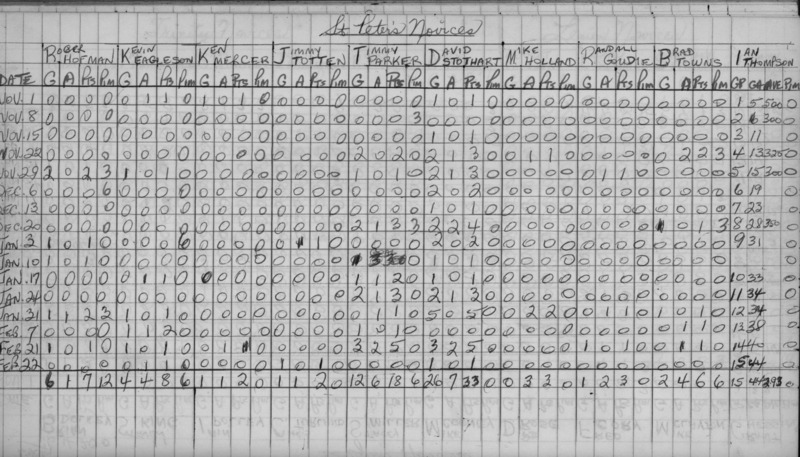 St Peter's Novices
ROGER KEVIN KEN JIMMY TIMMY DAVID MIKE RANDALL BRAD IAN
HOFMAN EAGLESON MERCER TOTTEN PARKER STOTHART HOLLAND GOUDIE TOWNS THOMPSON
DATE G A Pts Pim G A Pts Pim G A Pts Pim G A Pts Pim G A Pts Pim G A Pts Pim G A Pts Pim G A Pts Pim G A Pts Pim GP GA AVE Pim
NOV. 1 0 0 0 0 0 1 1 0 1 0 1 0 0 0 0 0 0 0 0 0 1 0 1 0 0 0 0 0 0 0 0 0 0 0 0 0 1 5 500 0
NOV. 8 0 0 0 0 0 0 0 0 0 0 0 0 0 0 0 0 0 0 0 3 0 0 0 0 0 0 0 0 0 0 0 0 0 0 0 0 2 6 300 0
NOV. 15 0 0 0 0 0 0 0 0 0 0 0 0 0 0 0 0 0 0 0 0 1 0 1 0 0 0 0 0 0 0 0 0 0 0 0 0 3 11 0
NOV. 22 0 0 0 0 0 0 0 0 0 0 0 0 0 0 0 0 2 0 2 0 2 1 3 0 0 1 1 0 0 0 0 0 0 2 2 3 4 13 3250 0
NOV. 29 2 0 2 3 1 0 1 0 0 0 0 0 0 0 0 0 1 0 1 0 2 1 3 0 0 0 0 0 0 1 1 0 0 0 0 0 5 15 300 0
DEC. 6 0 0 0 6 0 0 0 0 0 0 0 0 0 0 0 0 0 0 0 0 2 0 2 0 0 0 0 0 0 0 0 0 0 0 0 0 6 19 0
DEC. 13 0 0 0 0 0 0 0 0 0 0 0 0 0 0 0 0 0 0 0 0 1 0 1 0 0 0 0 0 0 0 0 0 0 0 0 0 7 23 0
DEC. 20 0 0 0 0 0 0 0 0 0 0 0 0 0 0 0 0 2 1 3 3 2 2 4 0 0 0 0 0 0 0 0 0 1 0 1 3 8 28 350 0
JAN. 3 1 0 1 0 0 0 0 6 0 0 0 0 0 1 1 0 0 0 0 0 2 0 2 0 0 0 0 0 0 0 0 0 0 0 0 0 9 31 0
JAN. 10 1 0 1 0 0 0 0 0 0 0 0 0 0 0 0 0 1 0 1 0 0 0 0 0 0 0 0 0 0 0 0 0 0
JAN. 17 0 0 0 0 0 1 1 0 0 0 0 0 0 0 0 0 1 1 2 0 1 0 1 0 0 0 0 0 0 0 0 0 0 0 0 0 10 33 0
JAN. 24 0 0 0 0 0 0 0 0 0 0 0 0 0 0 0 0 2 1 3 0 2 1 3 0 0 0 0 0 0 0 0 0 0 0 0 0 11 34 0
JAN. 31 1 1 2 3 1 0 1 0 0 0 0 0 0 0 0 0 0 1 1 0 5 0 5 0 0 2 2 0 0 1 1 0 1 0 1 0 12 34 0
FEB. 7 0 0 0 0 1 1 2 0 0 0 0 0 0 0 0 0 1 0 1 0 0 0 0 0 0 0 0 0 0 0 0 0 0 1 1 0 13 38 0
FEB. 21 1 0 1 0 1 0 1 0 0 1 1 0 0 0 0 0 3 2 5 0 3 2 5 0 0 0 0 0 1 0 1 0 0 1 1 0 14 40 0
FEB. 22 0 0 0 0 0 0 0 0 0 0 0 0 1 0 1 0 0 0 0 0 1 0 1 0 0 0 0 0 0 0 0 0 0 0 0 0 15 44 0
6 1 7 12 4 4 8 6 1 1 2 0 1 1 2 0 12 6 18 6 26 7 33 0 0 3 3 0 1 2 3 0 2 4 6 6 15 44 293 0